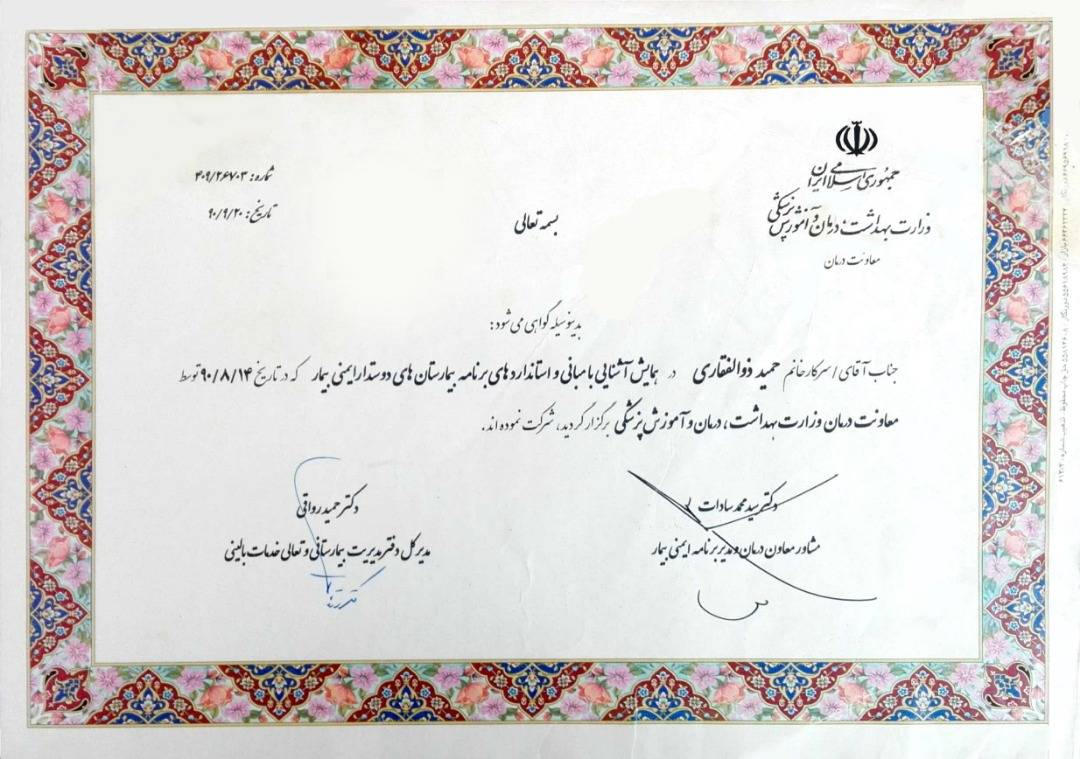 جمهوری اسلامی ایران
وزارت بهداشت، درمان و آموزش پزشکی
معاونت درمان
شماره: ۴۰۹/۲۶۷۰۳
تاریخ: ۹۰/۹/۲۰
بسمه تعالی
بدینوسیله گواهی می شود:
جناب آقای / سرکار خانم حمید ذوالفقاری در همایش آشنایی با مبانی و استانداردهای برنامه بیمارستان های دوستدار ایمنی بیمار که در تاریخ ۹۰/۸/۱۴ توسط
معاونت درمان وزارت بهداشت، درمان و آموزش پزشکی برگزار گردید، شرکت نموده اند.
دکتر سید محمد سادات
مشاور معاون درمان و مدیر برنامه ایمنی بیمار
دکتر حمید رواقی
مدیر کل دفتر مدیریت بیمارستانی و تعالی خدمات بالینی